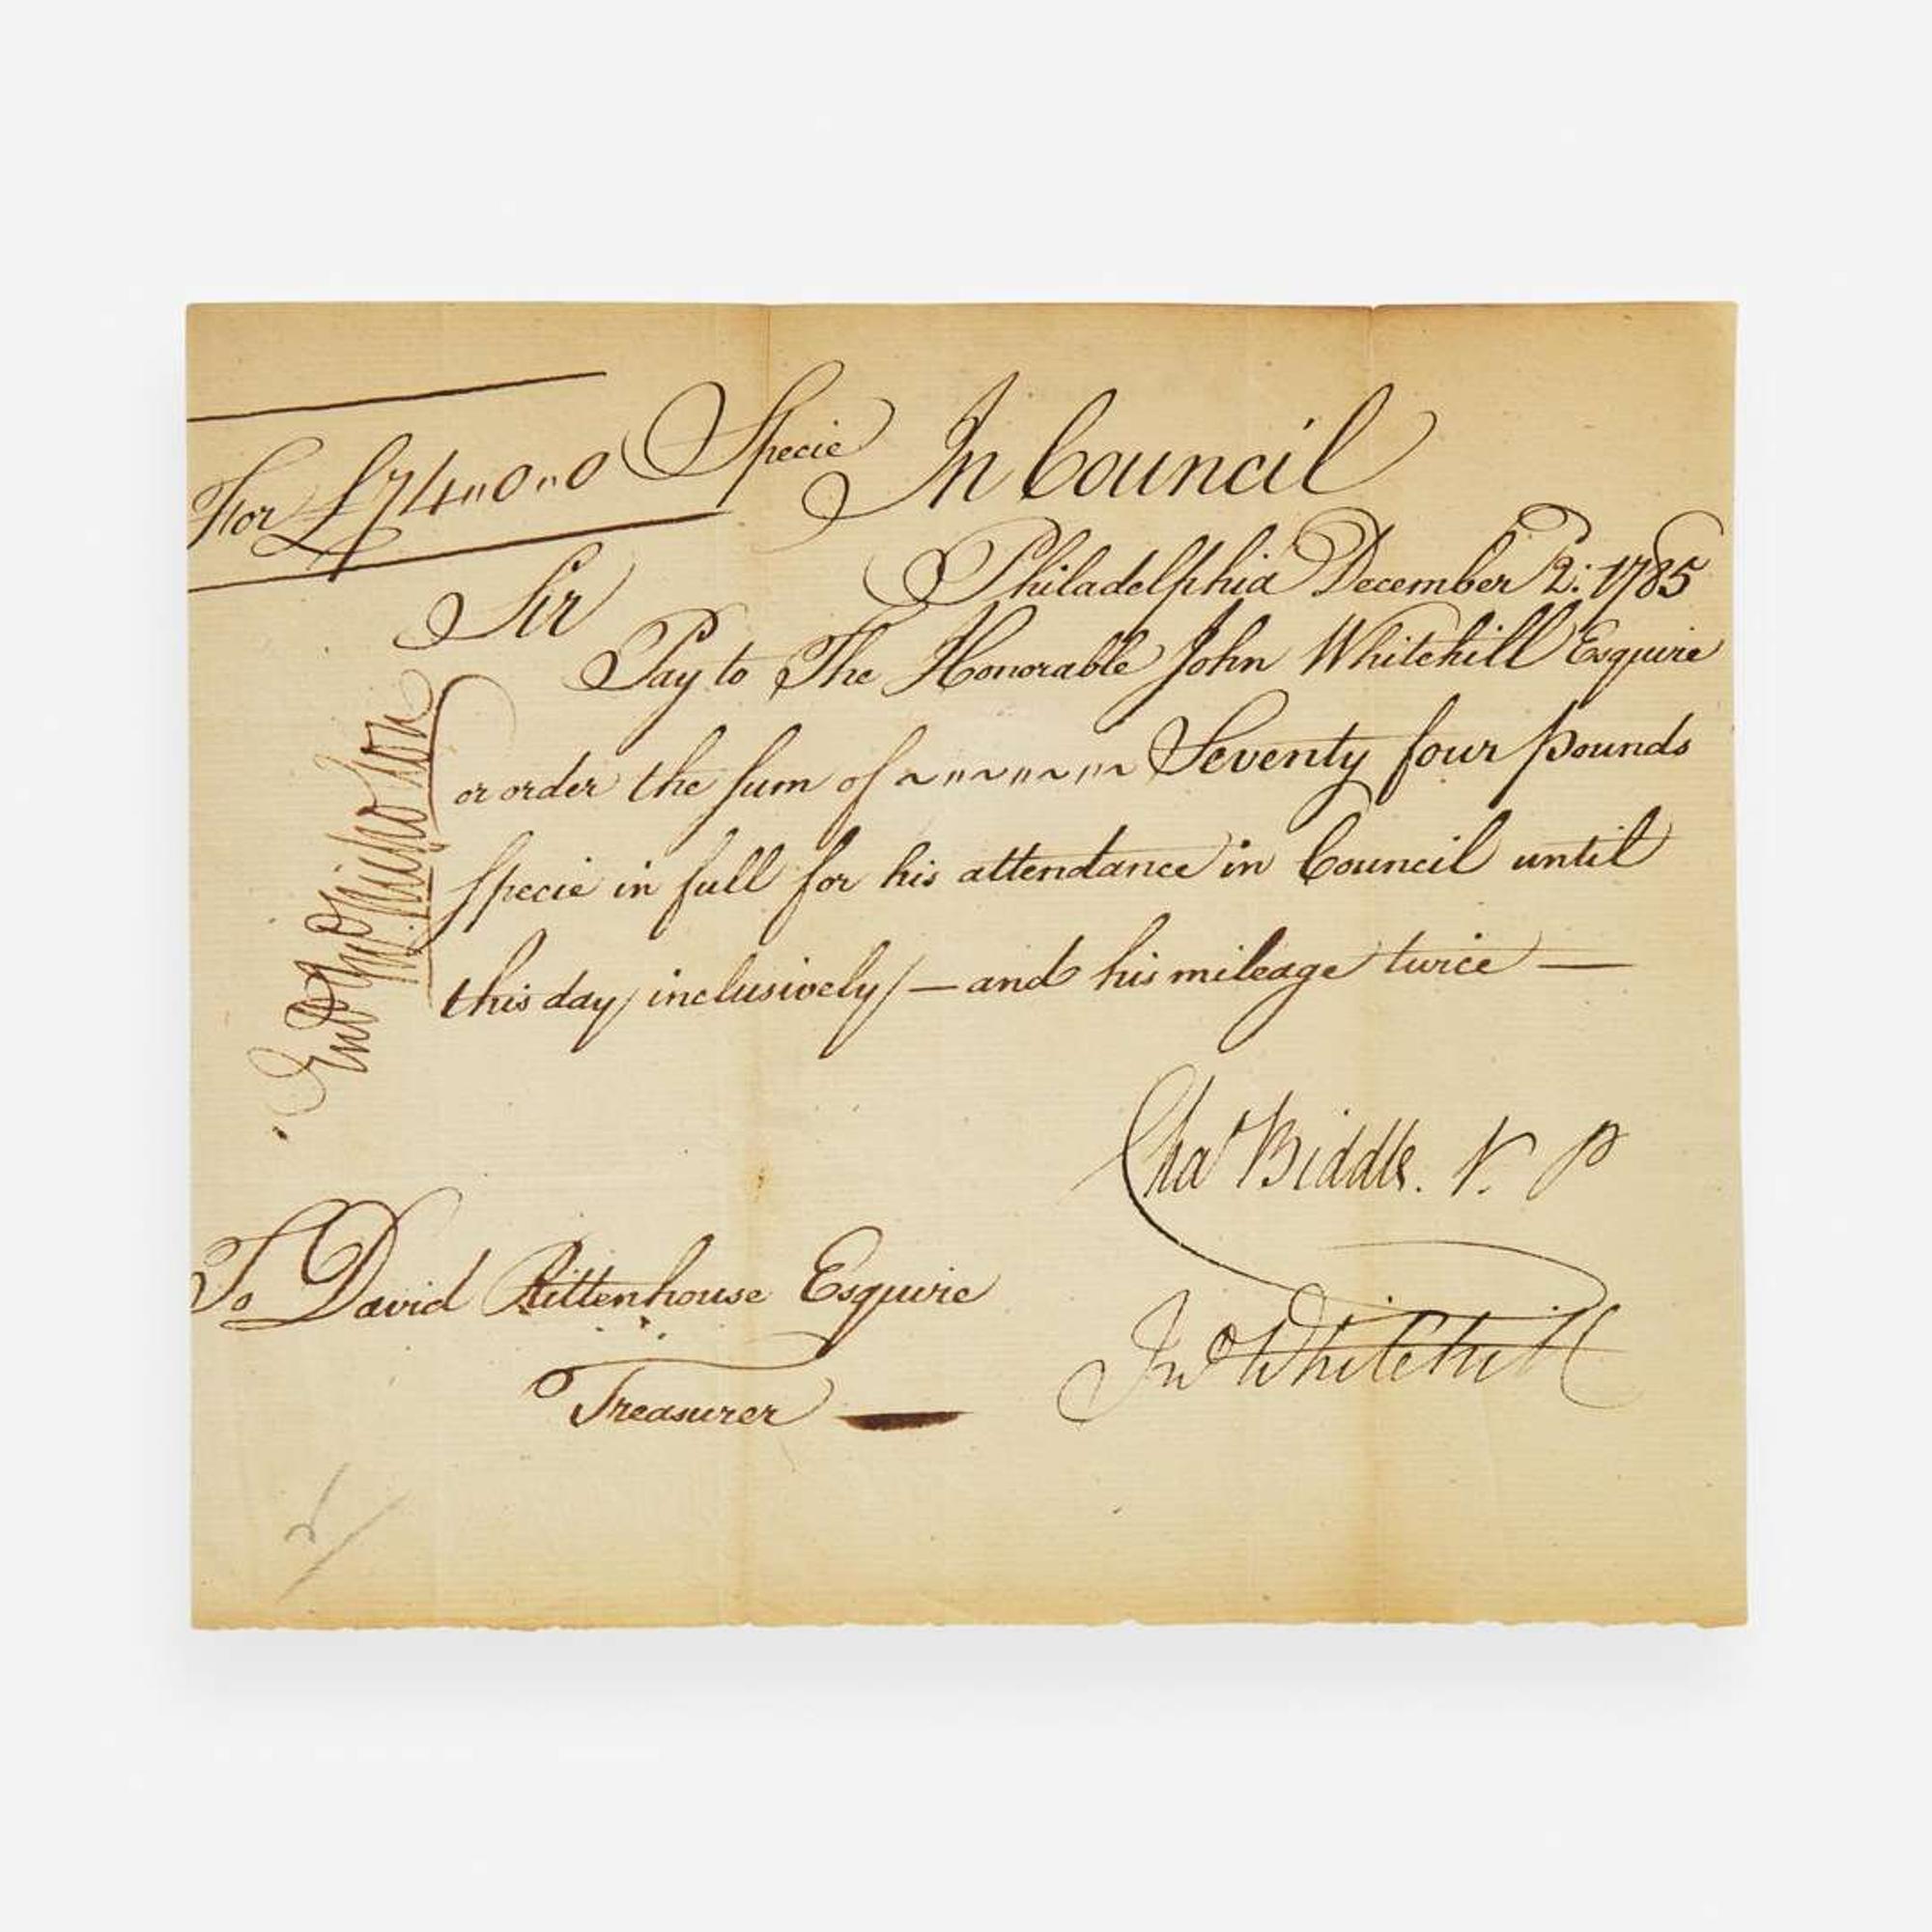 For £74"0"0 Specie
In Council
Philadelphia December 2: 1785
Sir
Pay to The Honorable John Whitehill Esquire
or order the sum of ~"~"~"~ Seventy four pounds
specie in full for his attendance in Council until
this day/inclusively/—and his mileage twice —
Entd Jno Nicholson
Chas Biddle. V. P
To David Rittenhouse Esquire
Treasurer —
Jno Whitehill